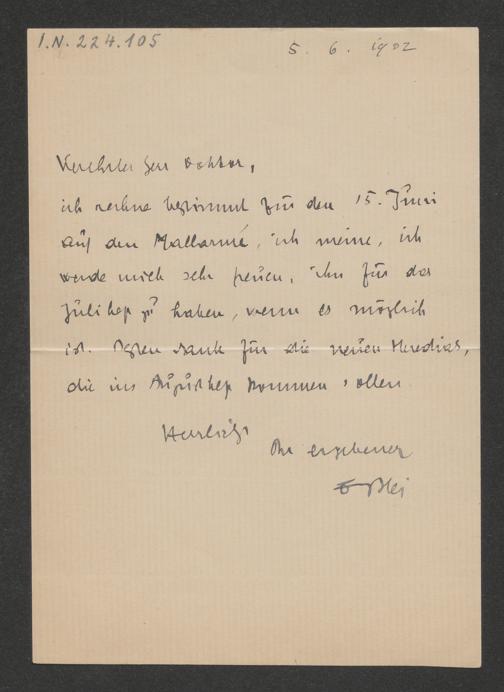 I.N. 224.105
5. 6. 1902
Verehrter Herr Doktor,
ich rechne bestimmt für den 15. Juni
auf den Mallarmé, ich meine, ich
werde mich sehr freuen, ihn für das
Juliheft zu haben, wenn es möglich
ist. Besten Dank für die neuen Heredias,
die ins Augustheft kommen sollen
Herzlichst
Ihr ergebener
F Blei